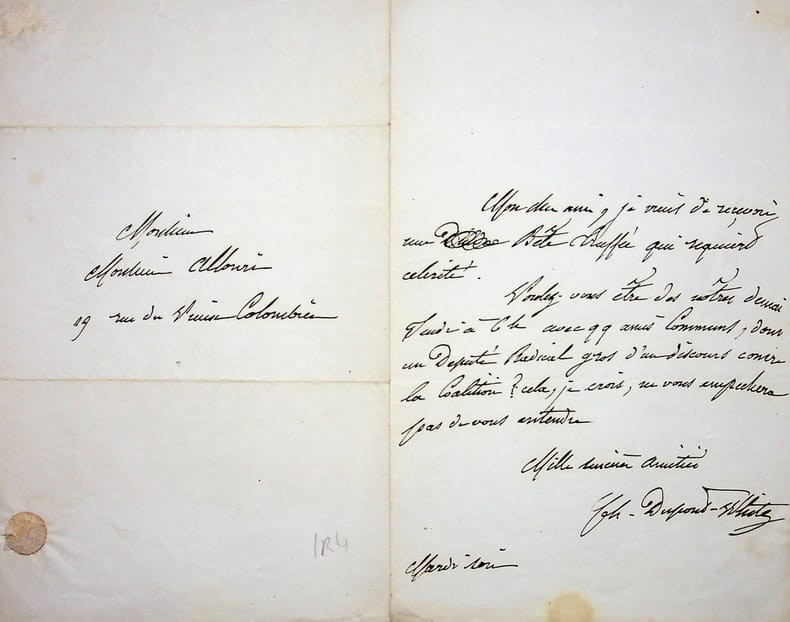 Monsieur
Monsieur Allouri
19 rue du Vieux Colombier
1R4
Mon cher ami, je viens de recevoir
une Bête truffée qui requiert
celerité.
Voulez-vous être des notres demain
à 6 h avec qq amis Communs, dont
un Deputé Radical gros d'un discours contre
la Coalition ? cela, je crois, ne vous empechera
pas de vous entendre
Mille sincères amitiés
Ch - Dupont-White
Mardi soir